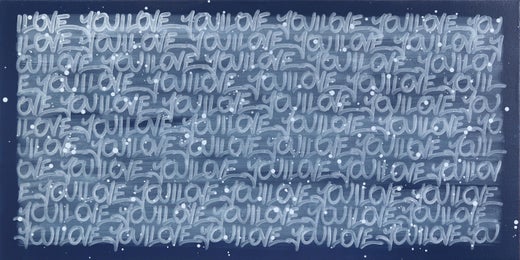 ILOVE YOUILOVE YOUILOVE YOUILOVE YOUILOVE YOU
YOUILOVE YOUILOVE YOUILOVE YOUILOVE YOUILOVE
ILOVE YOUILOVE YOUILOVE YOUILOVE YOUILOVE YOU
YOUILOVE YOUILOVE YOUILOVE YOUILOVE
OVE YOUILOVE YOUILOVE YOUILOVE YOUILOVE YOU
ILOVE YOUILOVE YOUILOVE YOUILOVE YOUILOVE
LOVE YOUILOVE YOUILOVE YOUILOVE YOUILOVE
OVE YOUILOVE YOUILOVE YOUILOVE YOUILOVE
LOVE YOUILOVE YOUILOVE YOUILOVE YOUILOVE
YOUILOVE YOUILOVE YOUILOVE YOUILOVE YOUILOVE
YOUILOVE YOUILOVE YOUILOVE YOUILOVE YOUILOVE